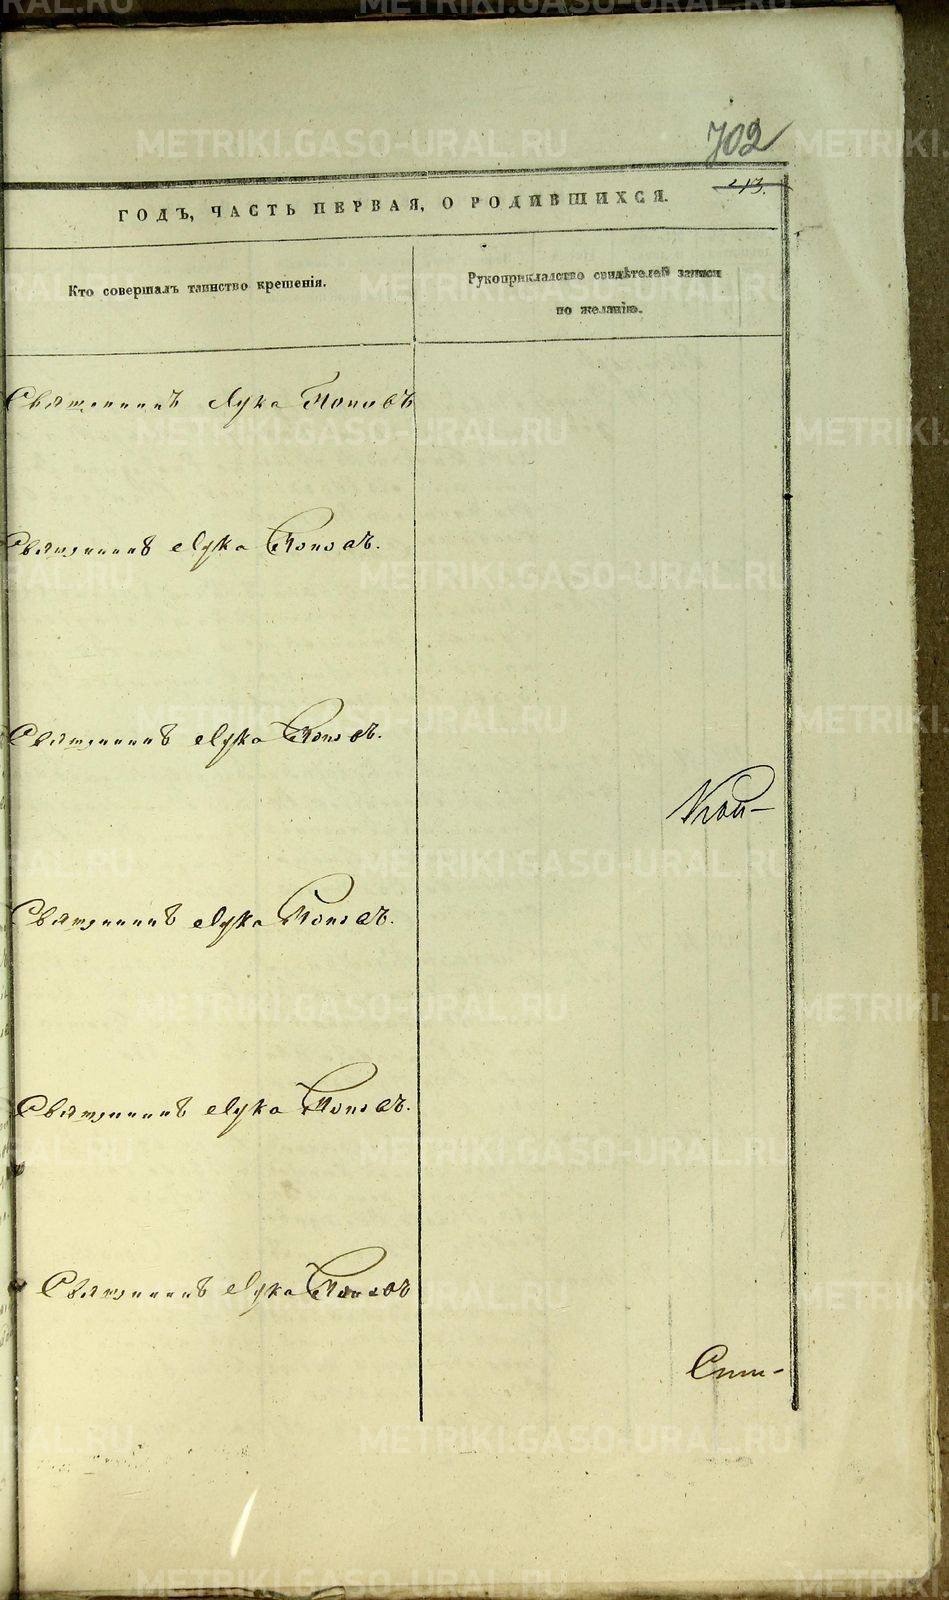 702
213.
ГОДЪ, ЧАСТЬ ПЕРВАЯ, О РОДИВШИХСЯ.
Кто совершалъ таинство крещенія.
Рукоприкладство свидѣтелей записи
по желанію.
Священникъ Лука Поповъ
Священникъ Лука Поповъ.
Священникъ Лука Поповъ.
Священникъ Лука Поповъ.
Священникъ Лука Поповъ.
Священникъ Лука Поповъ
METRIKI.GASO-URAL.RU